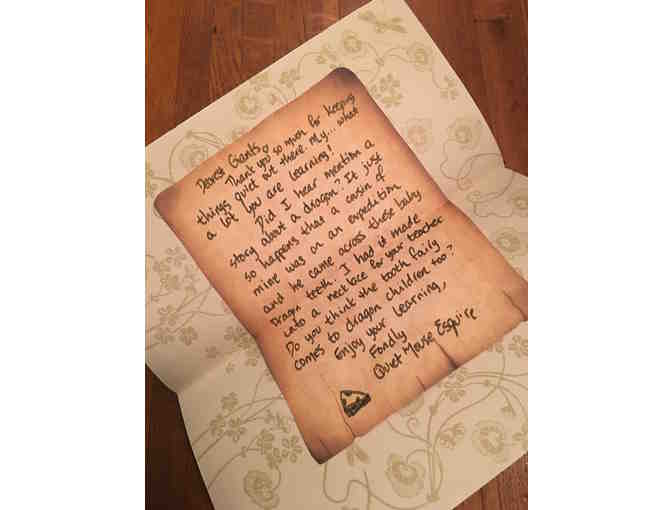 Dearest Giants,
Thank you so much for keeping
things quiet out there. My... what
a lot you are learning!
Did I hear mention a
story about a dragon? It just
so happens that a cousin of
mine was on an expedition
and he came across these baby
Dragon teeth. I had it made
into a necklace for your teacher
Do you think the tooth fairy
comes to dragon children too?
Enjoy your learning,
Fondly
Quiet Mouse Esquire